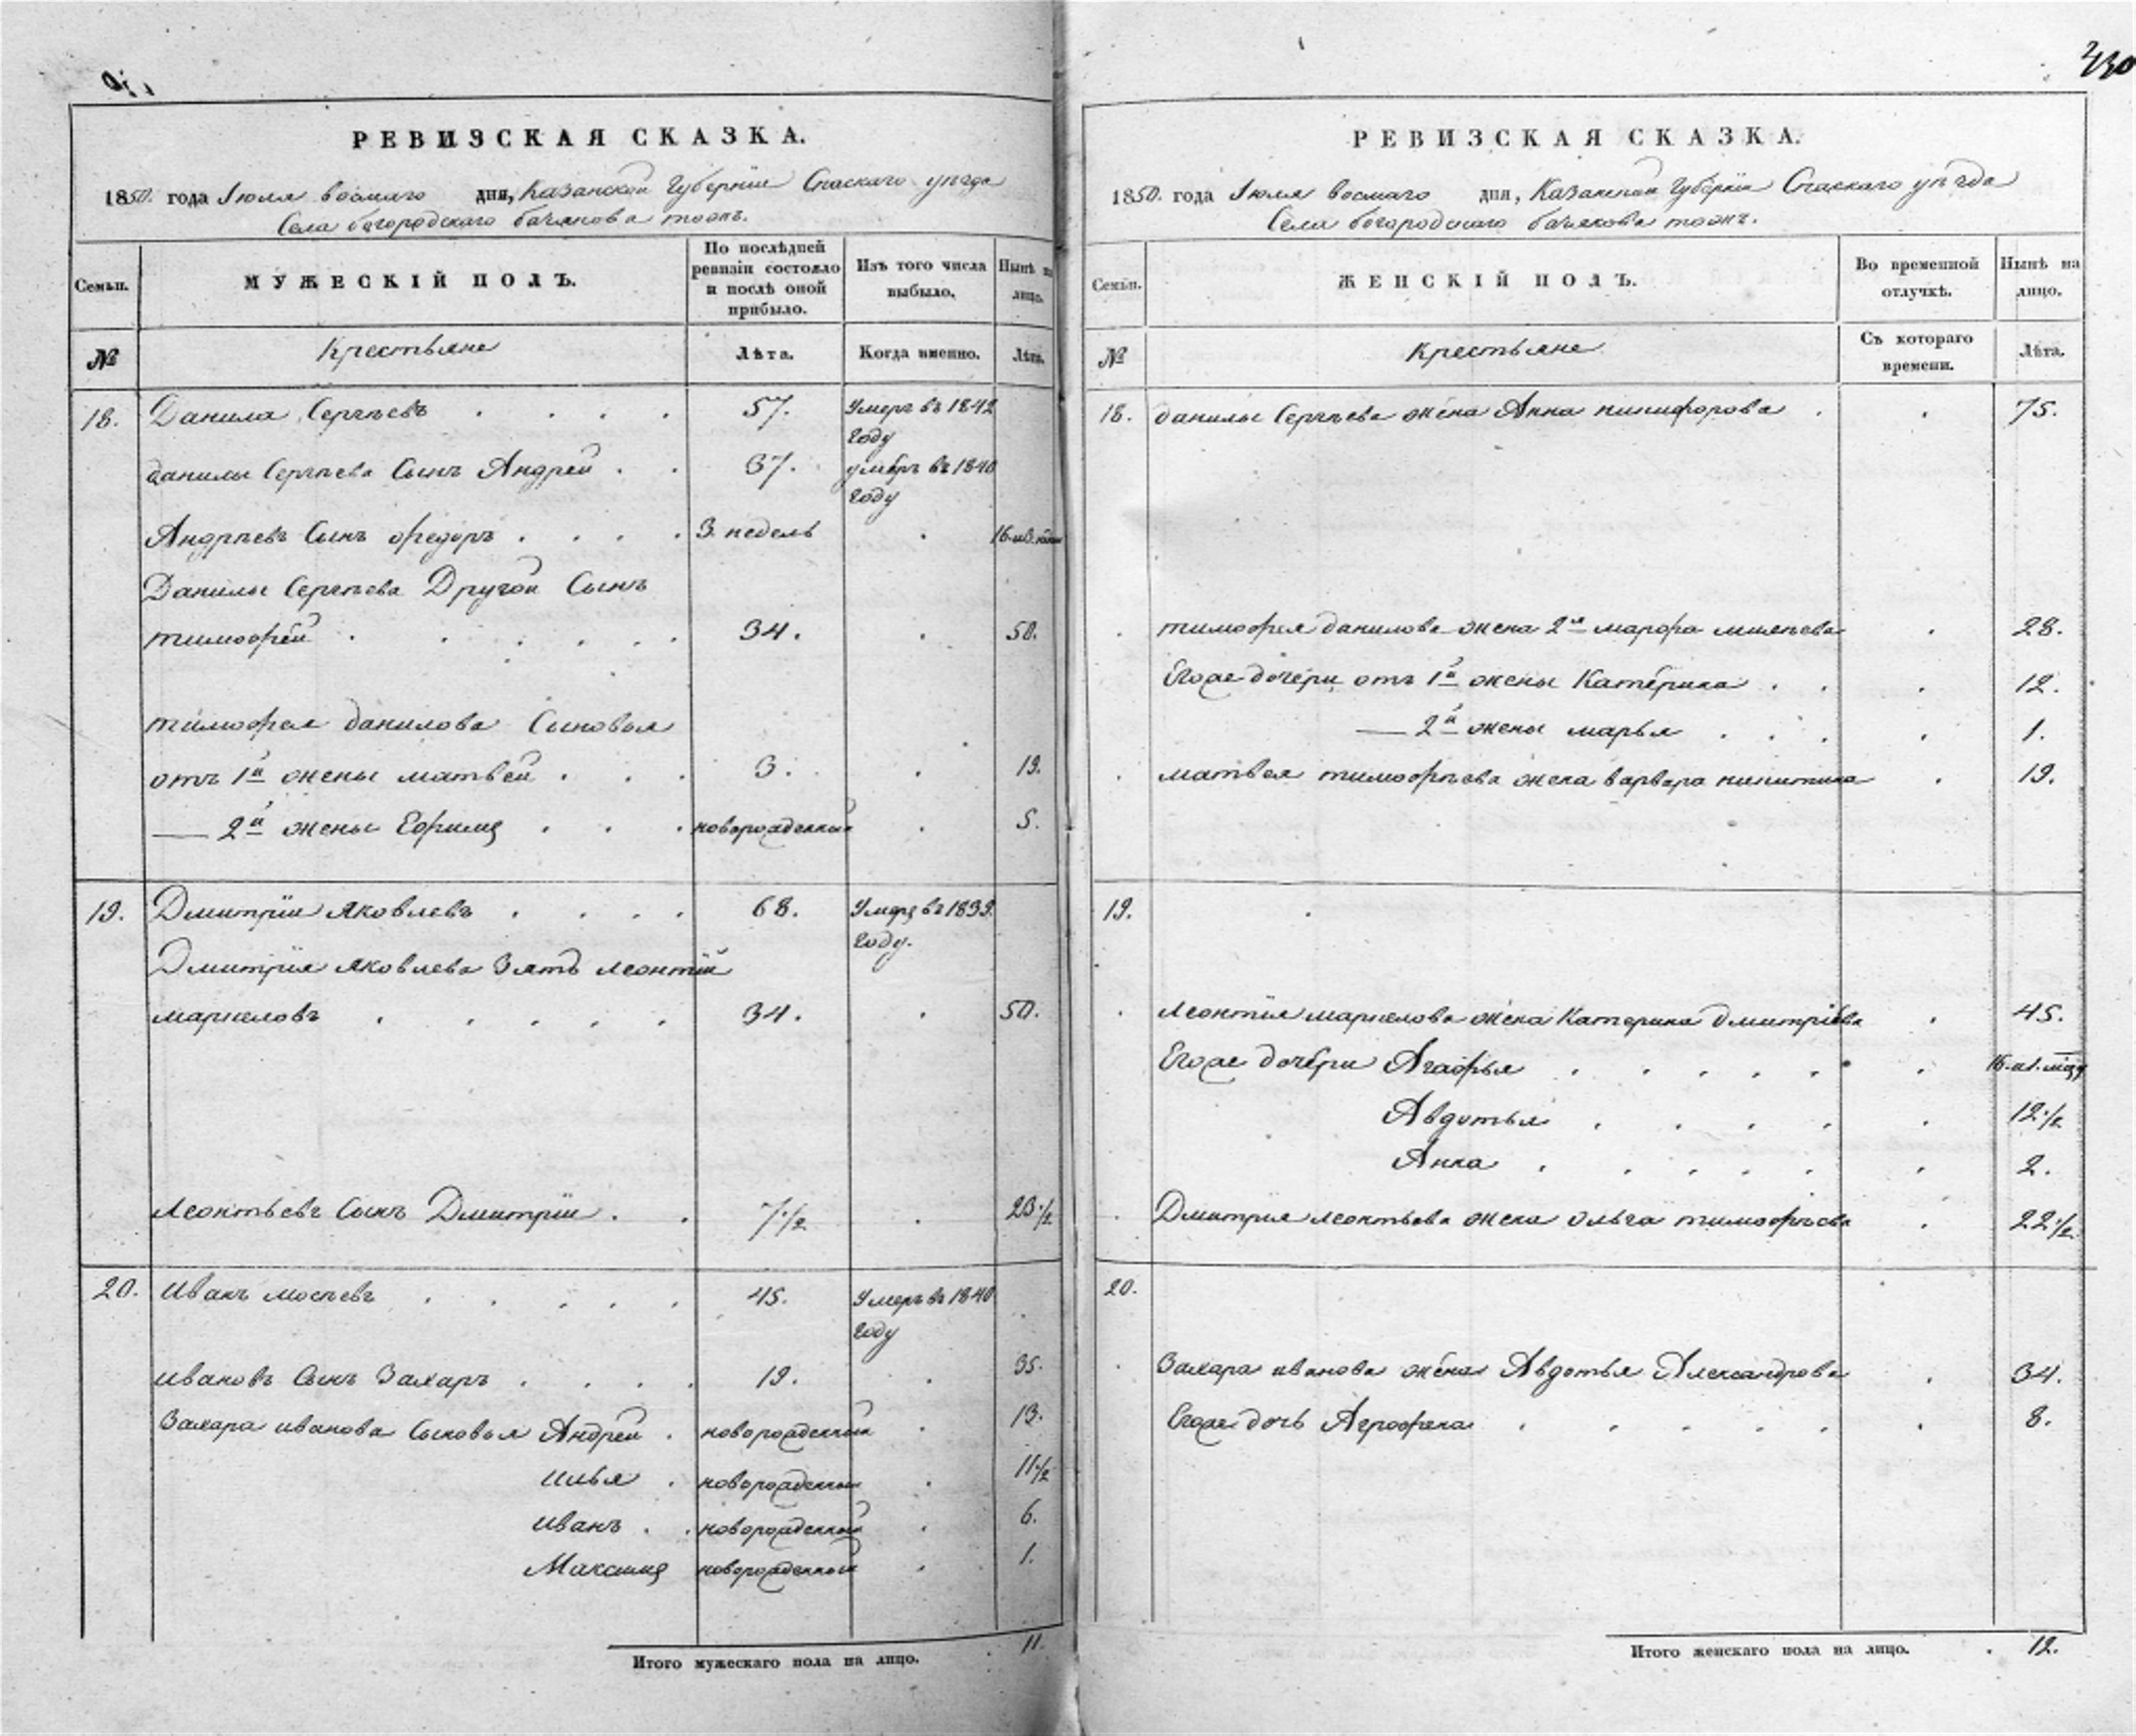 430
РЕВИЗСКАЯ СКАЗКА.
1850. года Іюля восмаго дня, Казанской Губерніи Спаскаго уѣзда
Села богородскаго тожъ.
Семьи.
МУЖЕСКІЙ ПОЛЪ.
По послѣдней ревизіи состояло и послѣ оной прибыло.
Изъ того числа выбыло.
Нынѣ на лицо.
№
Крестьяне
Лѣта.
Когда именно.
Лѣта.
18. Данила Сергѣевъ 57. Умеръ въ 1842 году
данилы Сергѣева Сынъ Андрей 37. умеръ въ 1840 году
Андрѣевъ Сынъ Федоръ 3. недель
Данилы Сергѣева Другой Сынъ
тимофей 34. 50.
тимофея данилова Сыновья
отъ 1й жены матвей 3. 19.
— 2й жены Ефимъ новорожденный 5.
19. Дмитрій Яковлевъ 68. Умеръ въ 1839. году.
Дмитрія Яковлева Зять леонтій
маркеловъ 34. 50.
леонтьевъ Сынъ Дмитрій 7 1/2 23 1/2
20. Иванъ мосѣевъ 45. Умеръ въ 1840 году
ивановъ Сынъ Захаръ 19. 35.
Захара иванова Сыновья Андрей новорожденный 13.
илья новорожденный 11 1/2
иванъ новорожденный 6.
Максимъ новорожденный 1.
Итого мужескаго пола на лицо. 11.
РЕВИЗСКАЯ СКАЗКА.
1850. года Іюля восмаго дня, Казанской Губерніи Спаскаго уѣзда
Села богородскаго тожъ.
Семьи.
ЖЕНСКІЙ ПОЛЪ.
Во временной отлучкѣ.
Нынѣ на лицо.
№
Крестьяне
Съ котораго времени.
Лѣта.
18. данилы Сергѣева жена Анна никифорова 75.
тимофея данилова жена 2я марфа 28.
Егоже дочери отъ 1й жены Катерина 12.
— 2й жены марья 1.
матвея тимофѣева жена варвара никитина 19.
19.
леонтія маркелова жена Катерина дмитріева 45.
Егоже дочери Агафья
Авдотья 12 1/2
Анна 2.
Дмитрия леонтьева жена ольга тимофѣева 22 1/2
20.
Захара иванова жена Авдотья Александрова 34.
Егоже дочь Агрофена 8.
Итого женскаго пола на лицо. 12.